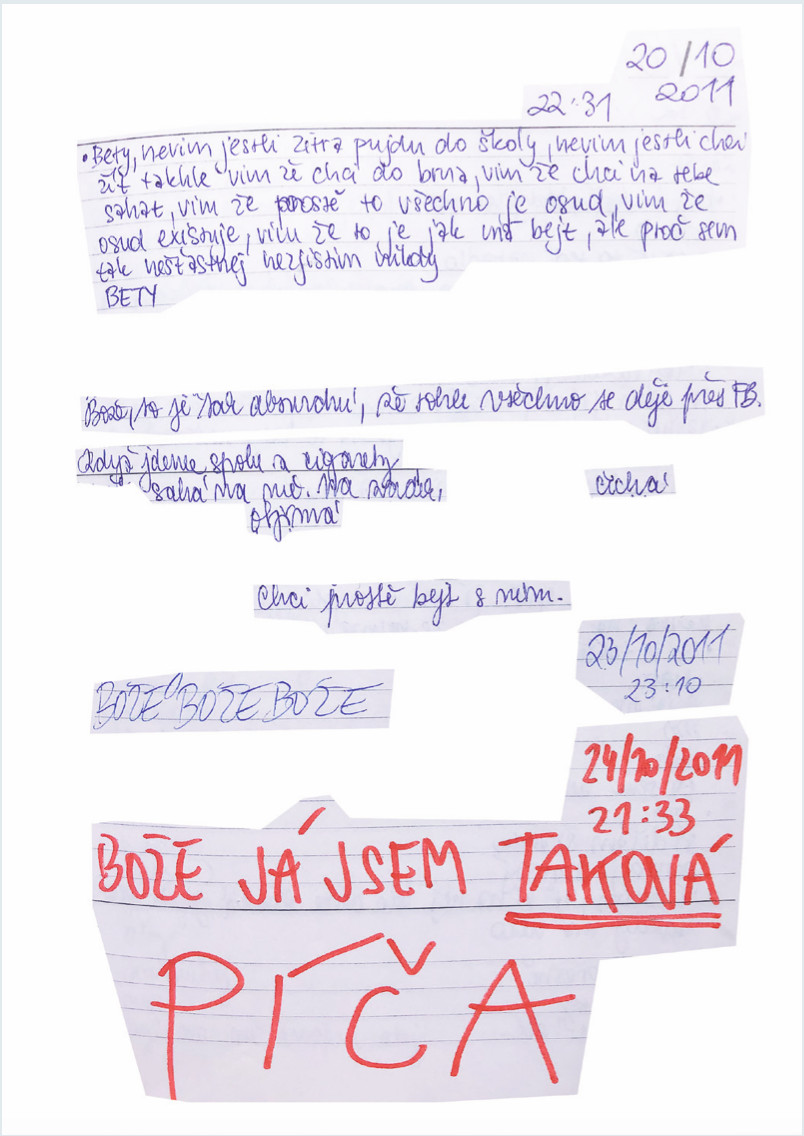 20/10
2011
22:31
• Bety, nevim jestli zitra pujdu do školy, nevim jestli chci
žít takhle vim že chci do brna, vim že chci na sebe
sahat, vim že prostě to všechno je osud, vim že
osud existuje, vim že to je jak má bejt, ale proč sem
tak nešťastnej nezjistim nikdy
BETY
Bože, to je tak absurdní, že tohle všechno se děje přes FB.
Když jdeme spolu a cigarety
sahá na mě. Na záda,
čichá
objímá
Chci prostě bejt s nim.
23/10/2011
23:10
BOŽE BOŽE BOŽE
24/10/2011
21:33
BOŽE JÁ JSEM TAKOVÁ
PÍČA